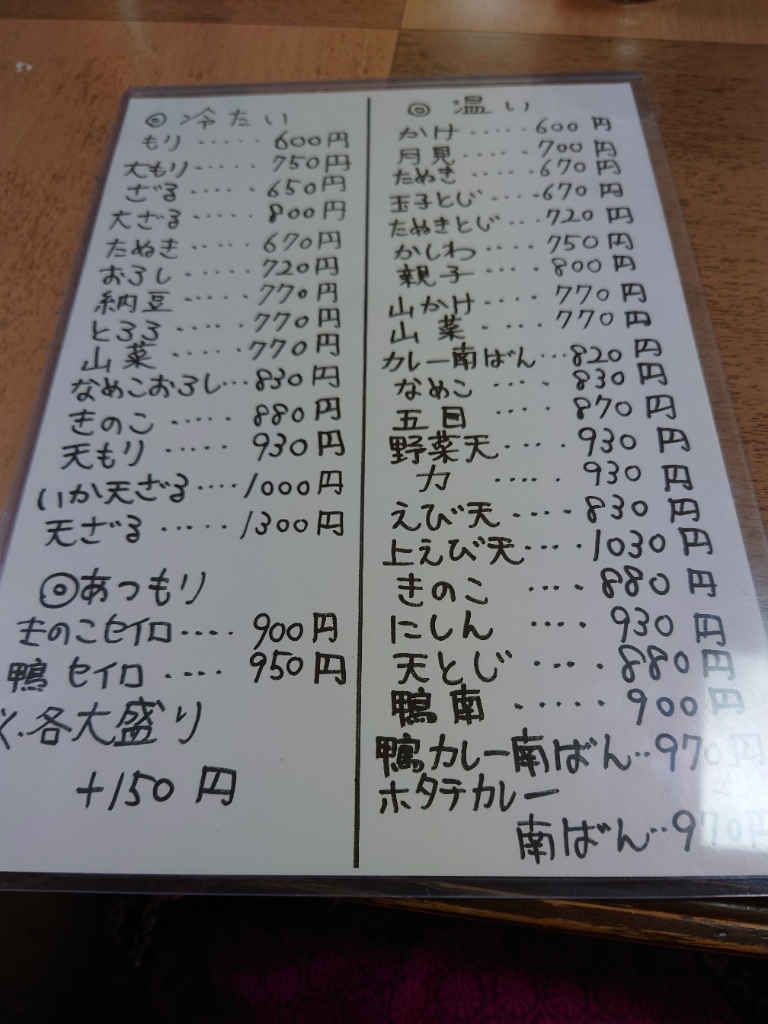 ◎ 冷たい
もり ····· 600円
大もり ····· 750円
ざる ····· 650円
大ざる ···· 800円
たぬき ····· 670円
おろし ···· 720円
納豆 ····· 770円
とろろ ····· 770円
山菜 ····· 770円
なめこおろし··· 830円
きのこ ····· 880円
天もり ····· 930円
いか天ざる ···· 1000円
天ざる ····· 1300円
◎あつもり
きのこセイロ···· 900円
鴨セイロ ···· 950円
※.各大盛り
+150円
◎ 温い
かけ ····· 600円
月見 ····· 700円
たぬき ···· 670円
玉子とじ ···· 670円
たぬきとじ ··· 720円
かしわ ···· 750円
親子 ···· 800円
山かけ ···· 770円
山菜 · ···· 770円
カレー南ばん ··· 820円
なめこ ···· 830円
五目 ···· 870円
野菜天 ···· 930円
力 ····· 930円
えび天 ···· 830円
上えび天 ···· 1030円
きのこ ···· 880円
にしん ···· 930円
天とじ ···· 880円
鴨南 ····· 900円
鴨カレー南ばん·· 970円
ホタテカレー
南ばん·· 970円